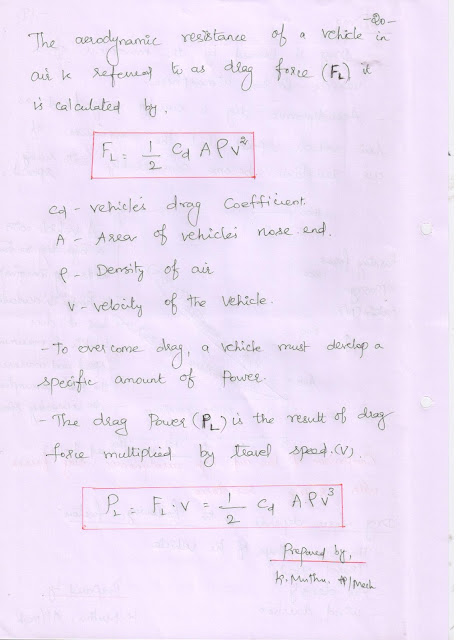 -20-
The aerodynamic resistance of a vehicle in
air is referred to as drag force (FL) it
is calculated by.
FL = 1/2 Cd A ρ v²
Cd - vehicle's drag Coefficient.
A - Area of vehicle's nose end.
ρ - Density of air
v - velocity of the vehicle.
- To over come drag, a vehicle must develop a
specific amount of Power.
- The drag Power (PL) is the result of drag
force multiplied by travel speed. (v).
PL = FL · v = 1/2 Cd A ρ v³
Prepared by,
K. Muthu. AP/Mech